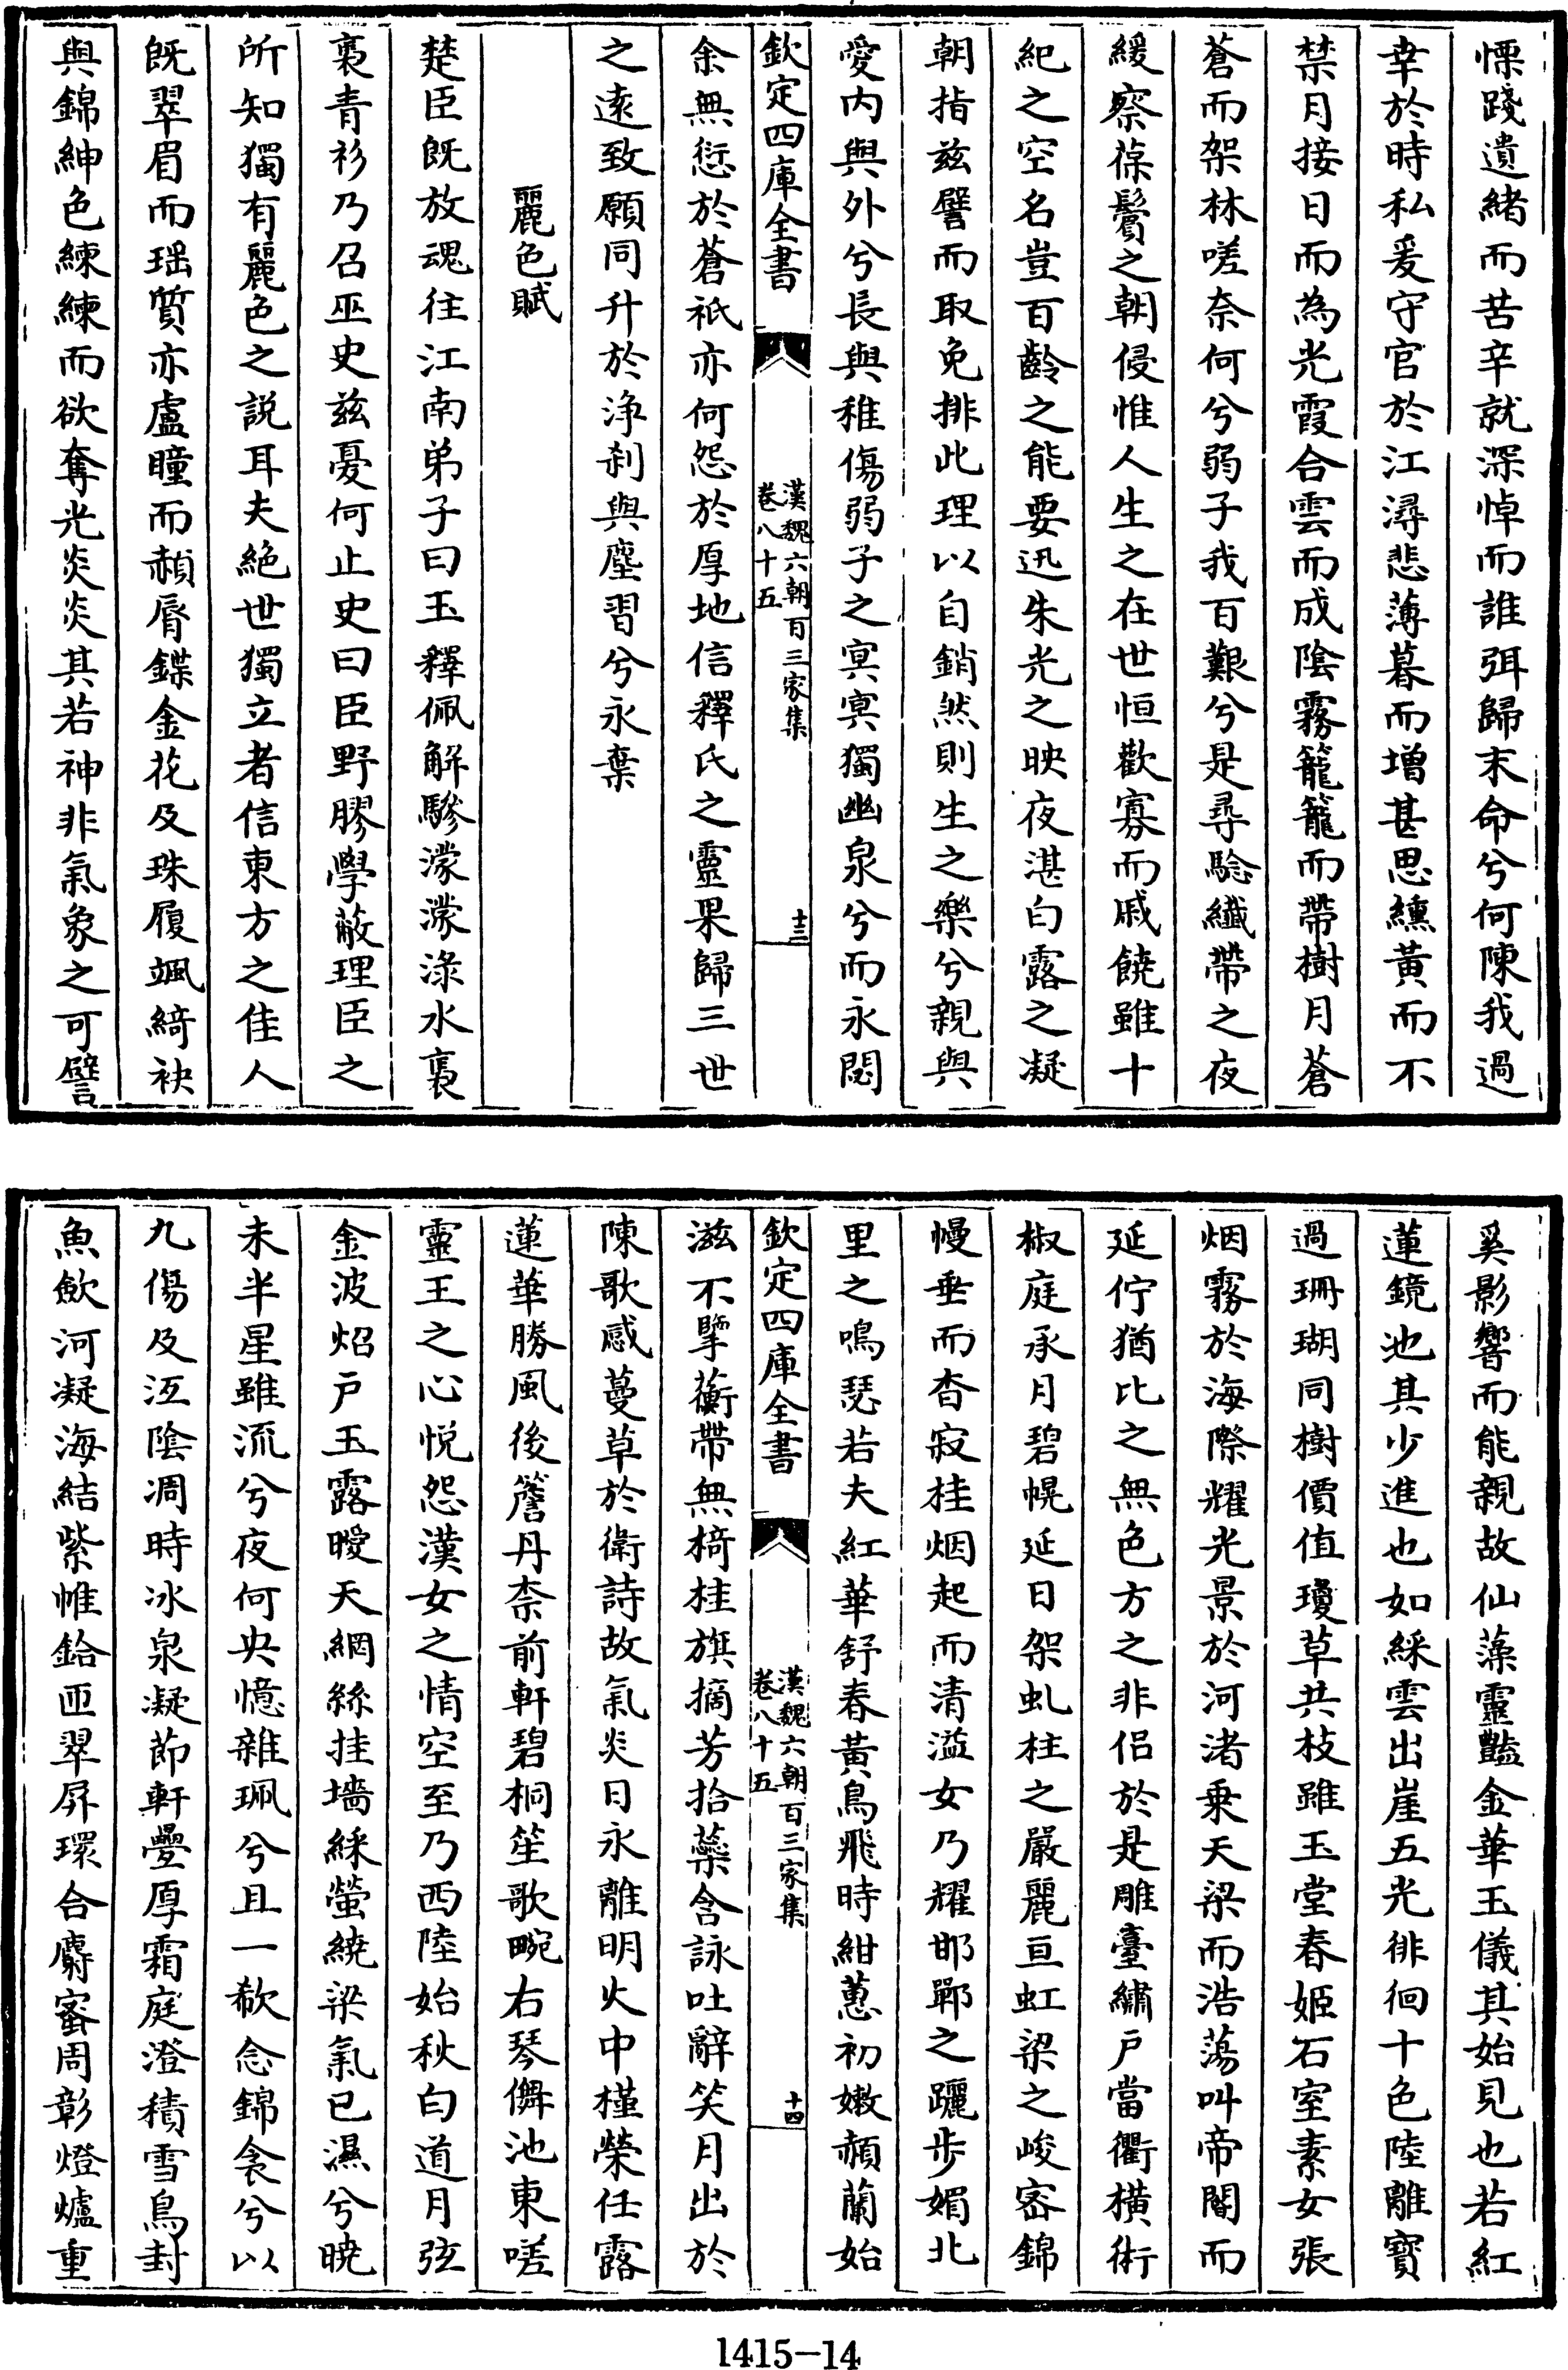 慄踐遺緒而苦辛就深悼而誰弭歸末命兮何陳我過
幸於時私爰守官於江潯悲薄暮而增甚思纁黃而不
禁月接日而為光霞合雲而成陰霧籠籠而帶樹月蒼
蒼而架林嗟奈何兮弱子我百艱兮是尋騐纖帶之夜
緩察葆鬢之朝侵惟人生之在世恒歡寡而戚饒雖十
紀之空名豈百齡之能要迅朱光之映夜湛白露之凝
朝指兹譬而取免排此理以自銷然則生之樂兮親與
愛内與外兮長與稚傷弱子之㝠㝠獨幽泉兮而永閟
欽定四庫全書
漢魏六朝百三家集
卷八十五
十三
余無愆於蒼祇亦何怨於厚地信釋氏之靈果歸三世
之遠致願同升於浄刹與塵習兮永棄
麗色賦
楚臣既放魂往江南弟子曰玉釋佩解驂濛濛淥水裛
裛青衫乃召巫史兹憂何止史曰臣野膠學蔽理臣之
所知獨有麗色之説耳夫絶世獨立者信東方之佳人
既翠眉而瑶質亦盧瞳而赬脣鍱金花及珠履颯綺袂
與錦紳色練練而欲奪光炎炎其若神非氣象之可譬
奚影響而能親故仙藻靈豔金華玉儀其始見也若紅
蓮鏡池其少進也如綵雲出崖五光徘徊十色陸離寳
過珊瑚同樹價值瓊草共枝雖玉堂春姬石室素女張
烟霧於海際耀光景於河渚乗天梁而浩蕩叫帝閽而
延佇猶比之無色方之非侣於是雕臺繡户當衢横術
椒庭承月碧幌延日架虬柱之嚴麗亘虹梁之峻宻錦
幔垂而杳寂桂烟起而清溢女乃耀邯鄲之躧歩媚北
里之鳴瑟若夫紅華舒春黄鳥飛時紺蕙初嫩赬蘭始
欽定四庫全書
漢魏六朝百三家集
卷八十五
十四
滋不掔蘅帶無椅桂旗摘芳拾蘂含詠吐辭笑月出於
陳歌感蔓草於衛詩故氣炎日永離明火中槿榮任露
蓮華勝風後簷丹柰前軒碧桐笙歌畹右琴儛池東嗟
靈王之心悦怨漢女之情空至乃西陸始秋白道月弦
金波炤户玉露曖天網絲挂墻綵螢繞梁氣已濕兮曉
未半星雖流兮夜何央憶雜珮兮且一欷念錦衾兮以
九傷及沍陰凋時冰泉凝節軒疊厚霜庭澄積雪鳥封
魚歛河凝海結紫帷鉿匝翠屏環合麝蜜周彰燈爐重
1415-14